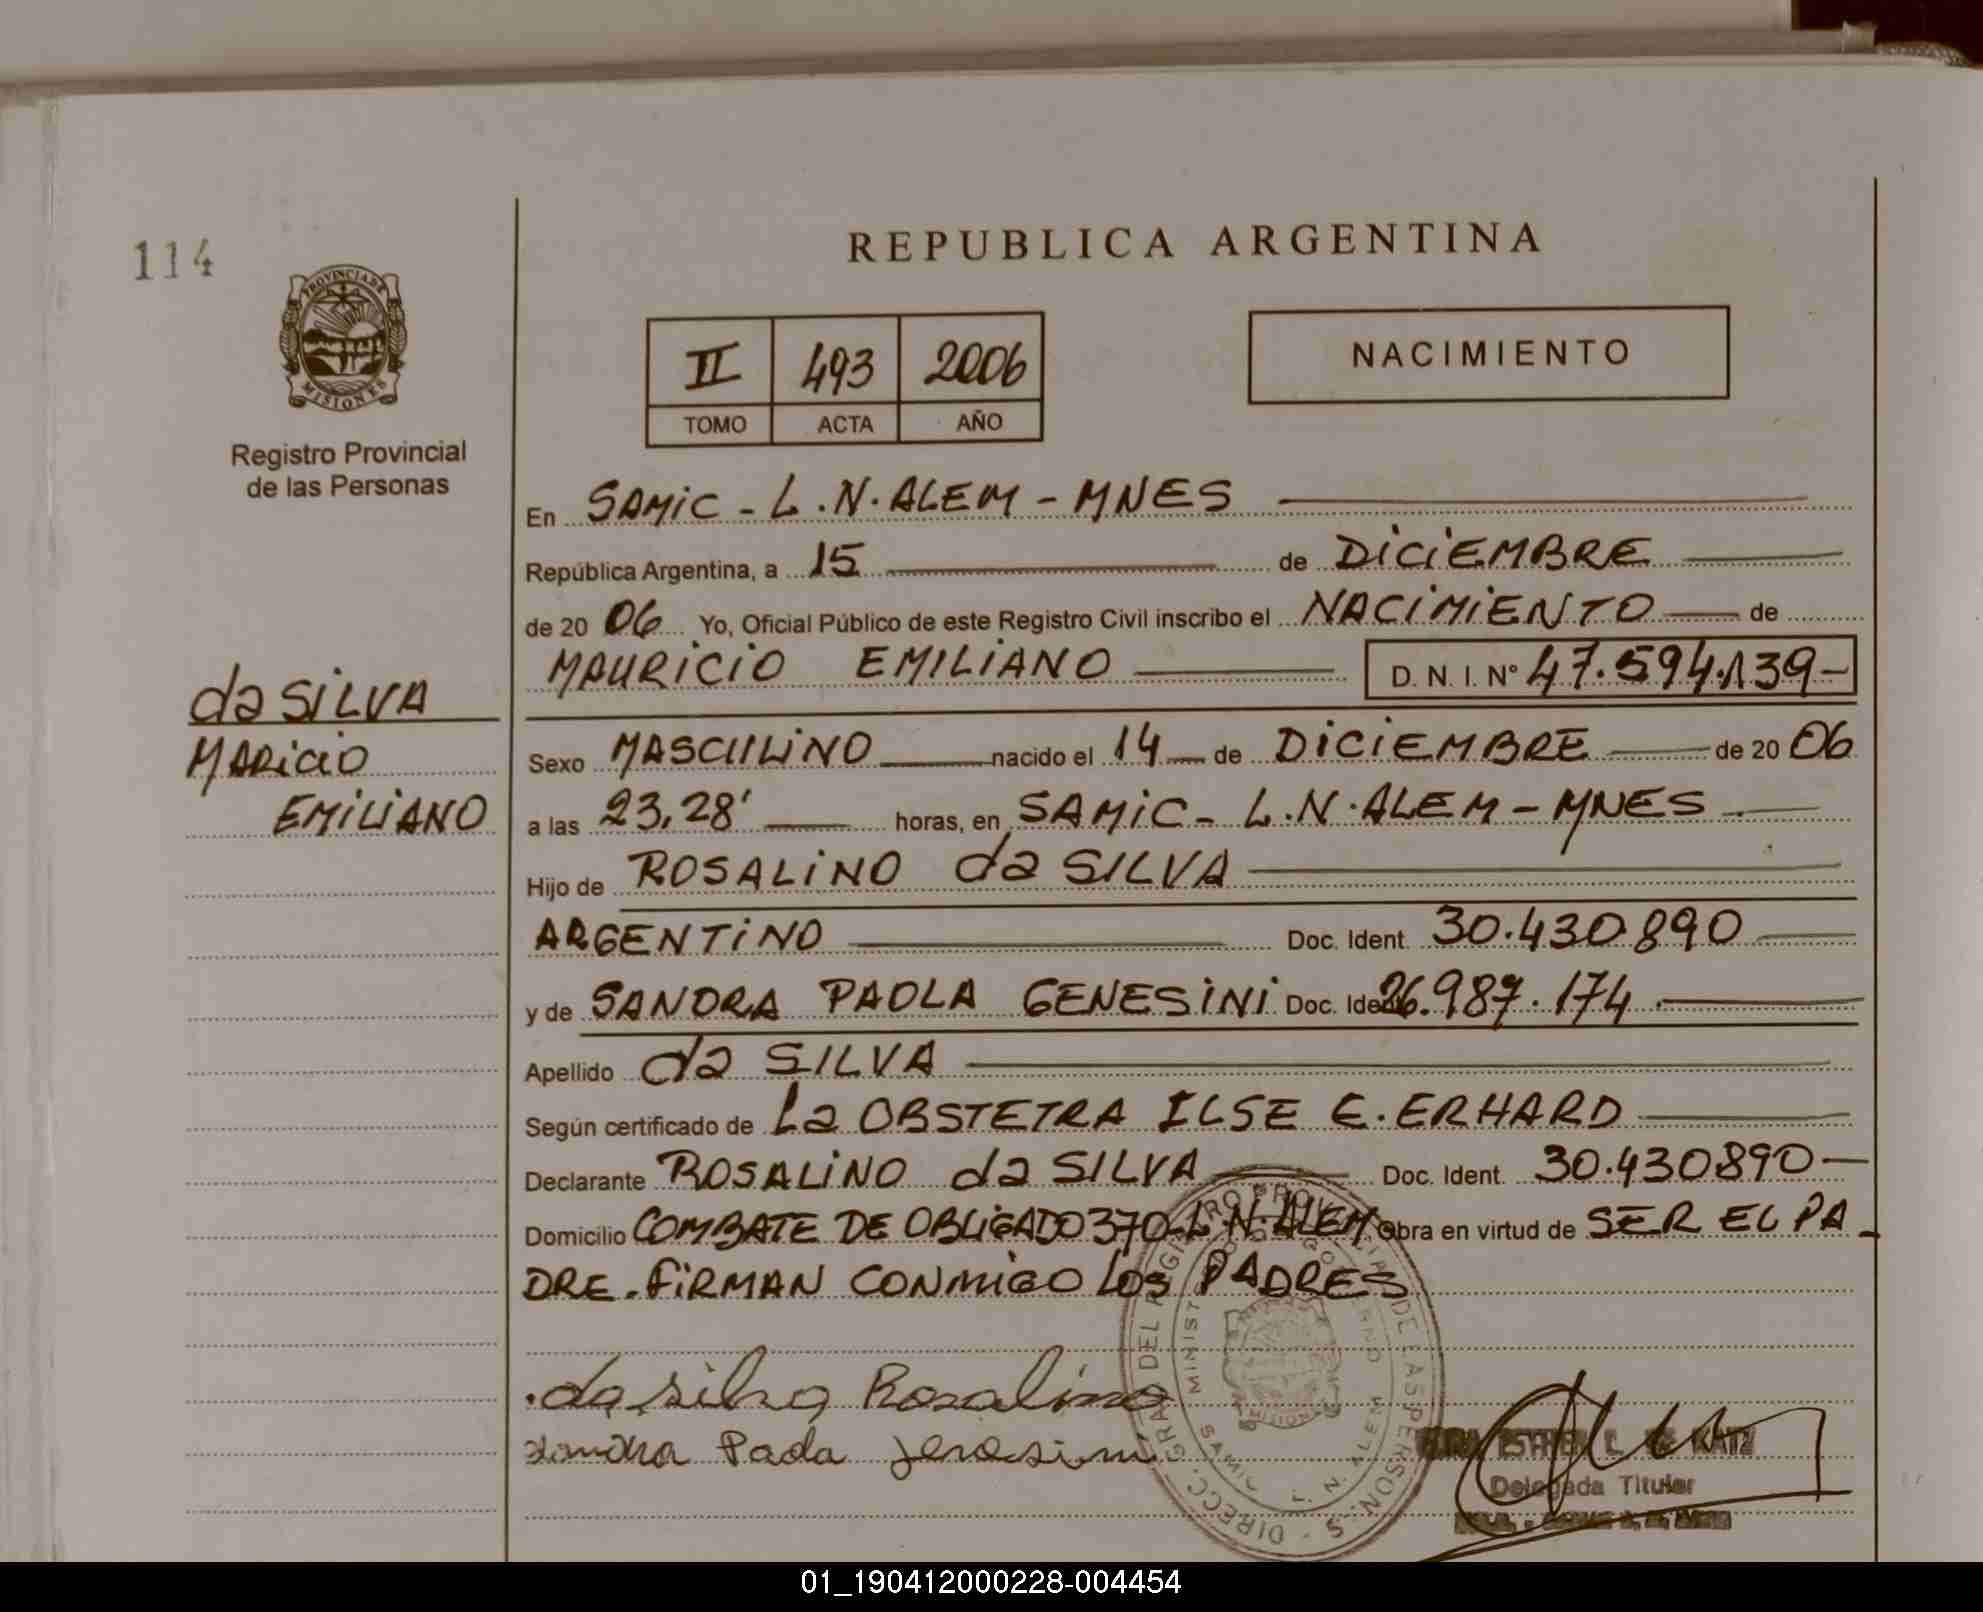 114
REPUBLICA ARGENTINA
PROVINCIA DE MISIONES
Registro Provincial
de las Personas
II 493 2006
TOMO ACTA AÑO
NACIMIENTO
En SAMIC - L.N. ALEM - MNES
República Argentina, a 15 de DICIEMBRE
de 20 06 Yo, Oficial Público de este Registro Civil inscribo el NACIMIENTO de
MAURICIO EMILIANO D. N. I. N° 47.594.139-
da SILVA
MARICIO
EMILIANO
Sexo MASCULINO nacido el 14 de DICIEMBRE de 20 06
a las 23,28' horas, en SAMIC - L.N. ALEM - MNES
Hijo de ROSALINO da SILVA
ARGENTINO Doc. Ident. 30.430.890
y de SANDRA PAOLA GENESINI Doc. Ident. 26.987.174.
Apellido da SILVA
Según certificado de La OBSTETRA ILSE E. ERHARD
Declarante ROSALINO da SILVA Doc. Ident. 30.430890-
Domicilio COMBATE DE OBLIGADO 370-L.N. ALEM Obra en virtud de SER EL PA-
DRE. FIRMAN CONMIGO LOS PADRES
da silva Rosalino
Sandra Paola Jenesini
DIRECC. GRAL DEL REGISTRO PROVINCIAL DE LAS PERSONAS
SAMIC L. N. ALEM
MISIONES
KATZ
Delegada Titular
01_190412000228-004454